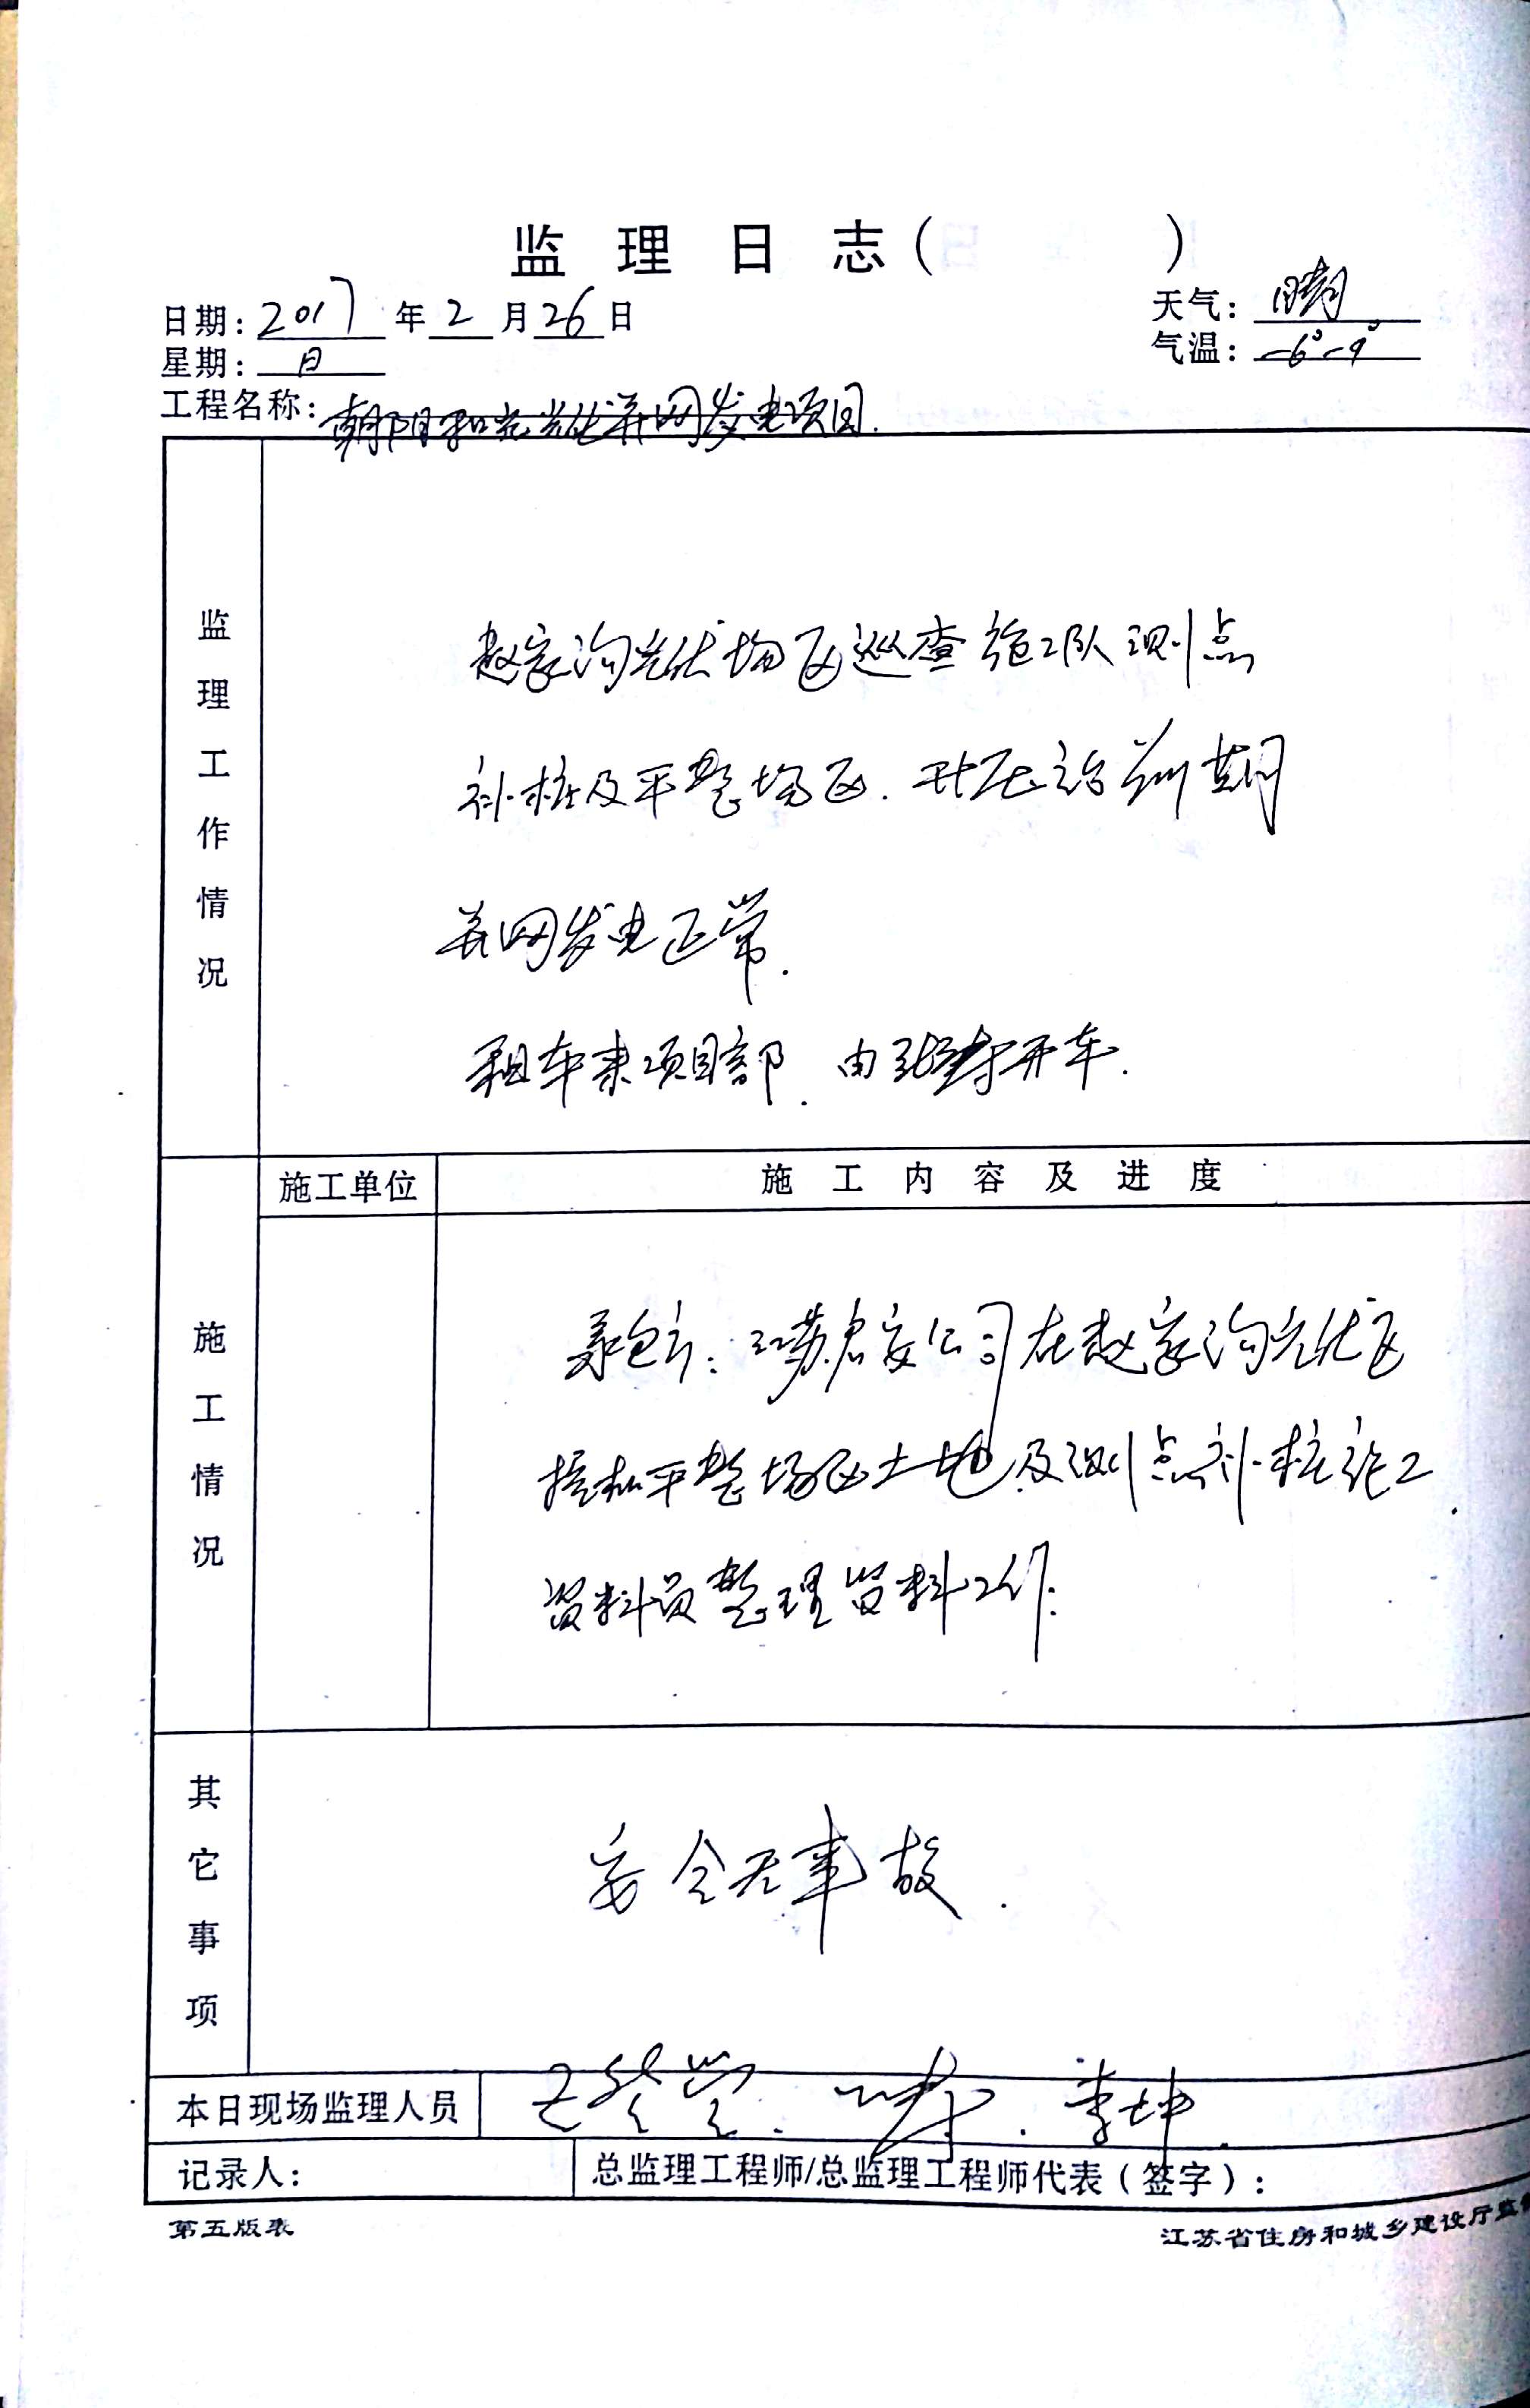 监理日志(  )
日期:2017年2月26日
天气:晴
星期:日
气温:-6°-9°
工程名称:朝阳和光光伏并网发电项目.
监理工作情况
赵家沟光伏场区巡查施工队测点
补桩及平整场区. 升压站前期
并网发电正常.
租车来项目部. 由开车.
施工单位
施工内容及进度
施工情况
承包方:江苏启安公司在赵家沟光伏区
挖机平整场区土地及测点补桩施工.
资料员整理资料工作.
其它事项
安全无事故.
本日现场监理人员
李坤.
记录人:
总监理工程师/总监理工程师代表(签字):
第五版表
江苏省住房和城乡建设厅监